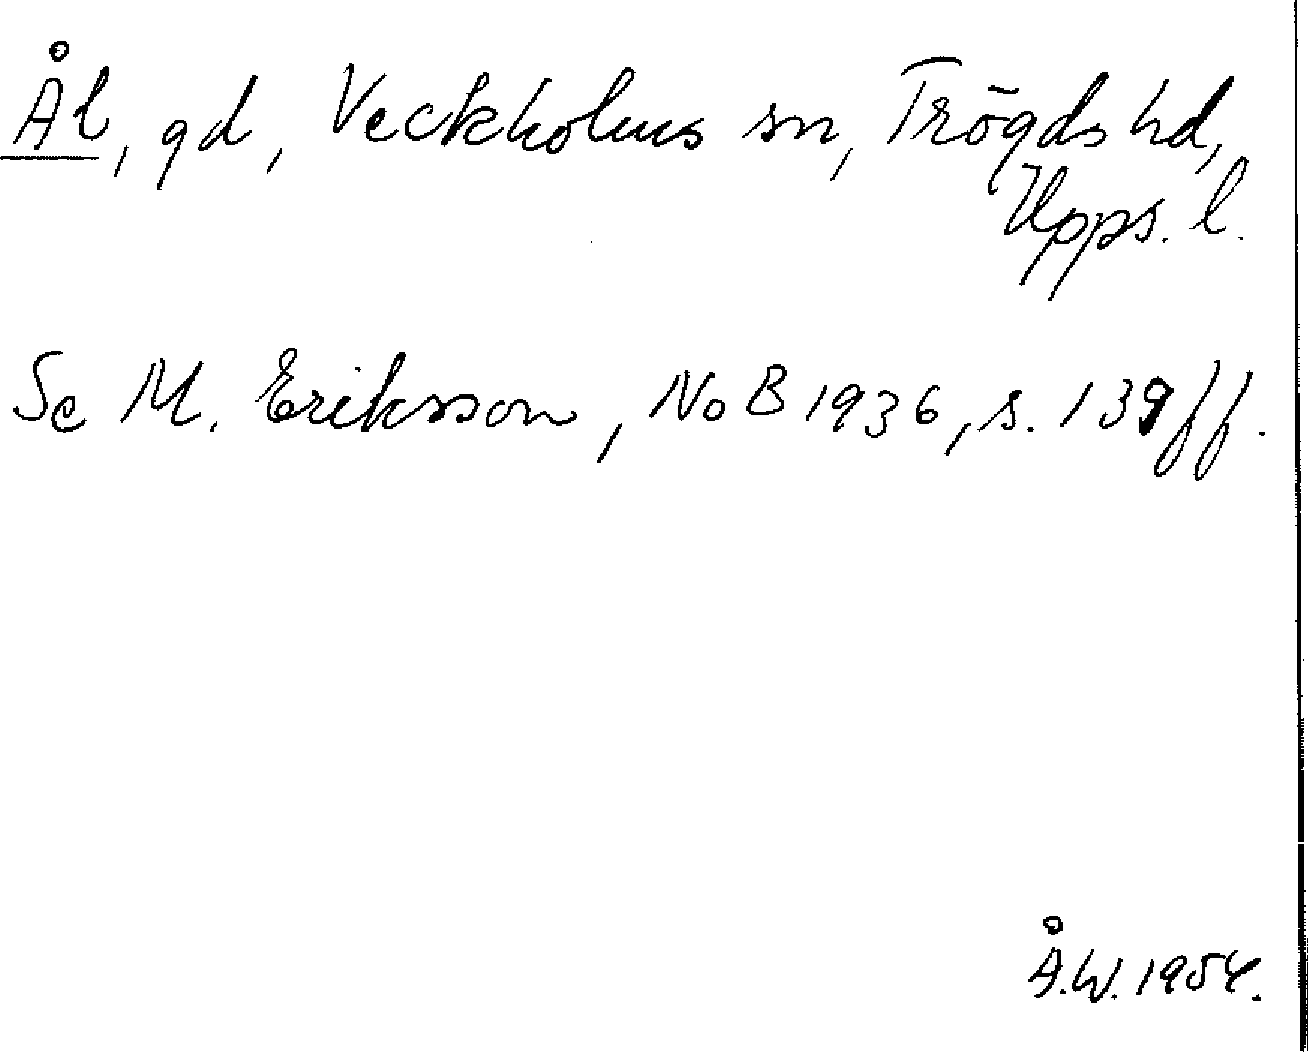 Ål, gd, Veckholms sn, Trögds hd,
Upps. l.
Se M. Eriksson, NoB 1936, s. 139 ff.
Å.W. 1954.